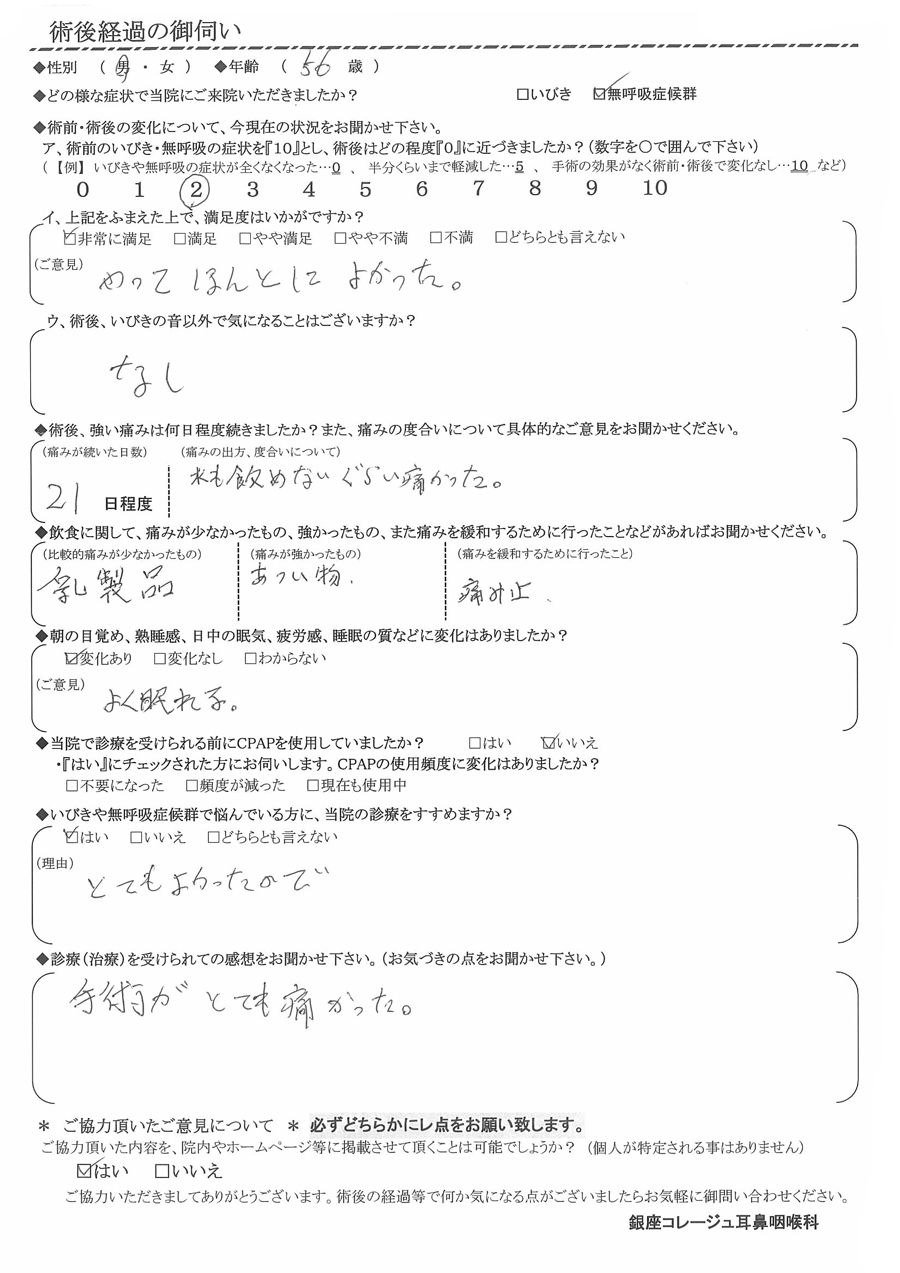 術後経過の御伺い
◆性別 （ 男 ・ 女 ） ◆年齢 （ 56 歳 ）
◆どの様な症状で当院にご来院いただきましたか？ □いびき ☑無呼吸症候群
◆術前・術後の変化について、今現在の状況をお聞かせ下さい。
ア、術前のいびき・無呼吸の症状を『10』とし、術後はどの程度『0』に近づきましたか？（数字を〇で囲んで下さい）
（【例】 いびきや無呼吸の症状が全くなくなった…0 、 半分くらいまで軽減した…5 、 手術の効果がなく術前・術後で変化なし…10 など）
0 1 2 3 4 5 6 7 8 9 10
イ、上記をふまえた上で、満足度はいかがですか？
☑非常に満足 □満足 □やや満足 □やや不満 □不満 □どちらとも言えない
（ご意見） やって ほんとに よかった。
ウ、術後、いびきの音以外で気になることはございますか？
なし
◆術後、強い痛みは何日程度続きましたか？また、痛みの度合いについて具体的なご意見をお聞かせください。
（痛みが続いた日数） （痛みの出方、度合いについて）
21 日程度 水も飲めないぐらい痛かった。
◆飲食に関して、痛みが少なかったもの、強かったもの、また痛みを緩和するために行ったことなどがあればお聞かせください。
（比較的痛みが少なかったもの） （痛みが強かったもの） （痛みを緩和するために行ったこと）
乳製品 あつい物、 痛み止、
◆朝の目覚め、熟睡感、日中の眠気、疲労感、睡眠の質などに変化はありましたか？
☑変化あり □変化なし □わからない
（ご意見） よく眠れる。
◆当院で診療を受けられる前にCPAPを使用していましたか？ □はい ☑いいえ
・『はい』にチェックされた方にお伺いします。CPAPの使用頻度に変化はありましたか？
□不要になった □頻度が減った □現在も使用中
◆いびきや無呼吸症候群で悩んでいる方に、当院の診療をすすめますか？
☑はい □いいえ □どちらとも言えない
（理由） とてもよかったので
◆診療（治療）を受けられての感想をお聞かせ下さい。（お気づきの点をお聞かせ下さい。）
手術が とても痛かった。
＊ ご協力頂いたご意見について ＊ 必ずどちらかにレ点をお願い致します。
ご協力頂いた内容を、院内やホームページ等に掲載させて頂くことは可能でしょうか？ （個人が特定される事はありません）
☑はい □いいえ
ご協力いただきましてありがとうございます。術後の経過等で何か気になる点がございましたらお気軽に御問い合わせください。
銀座コレージュ耳鼻咽喉科